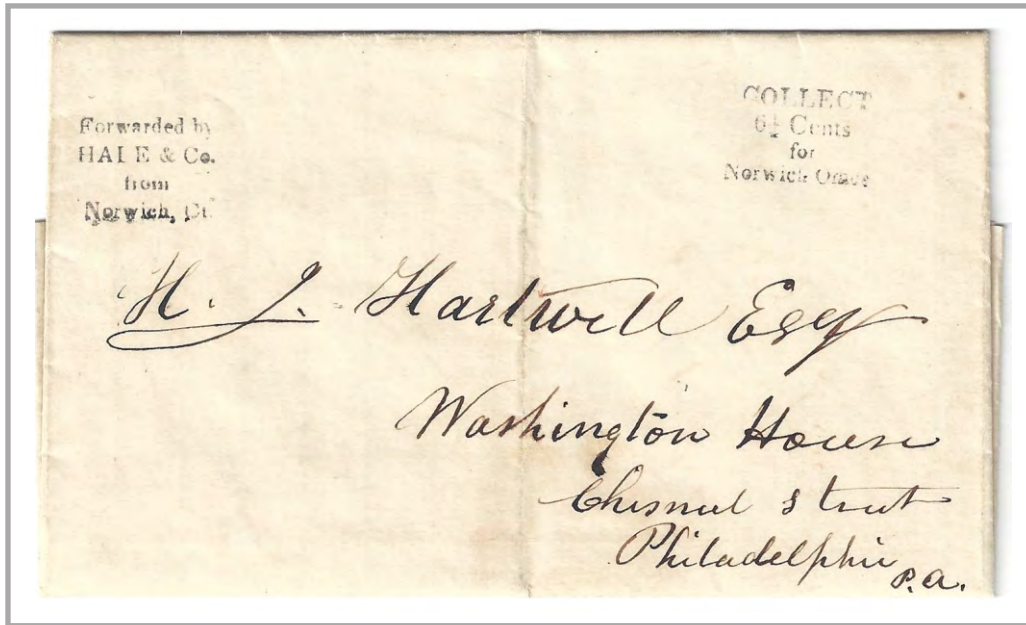 Forwarded by
HALE & Co.
from
Norwich, Ct.
COLLECT
6¼ Cents
for
Norwich Office
H. J. Hartwell Esqr
Washington House
Chesnut Street
Philadelphia
P.a.